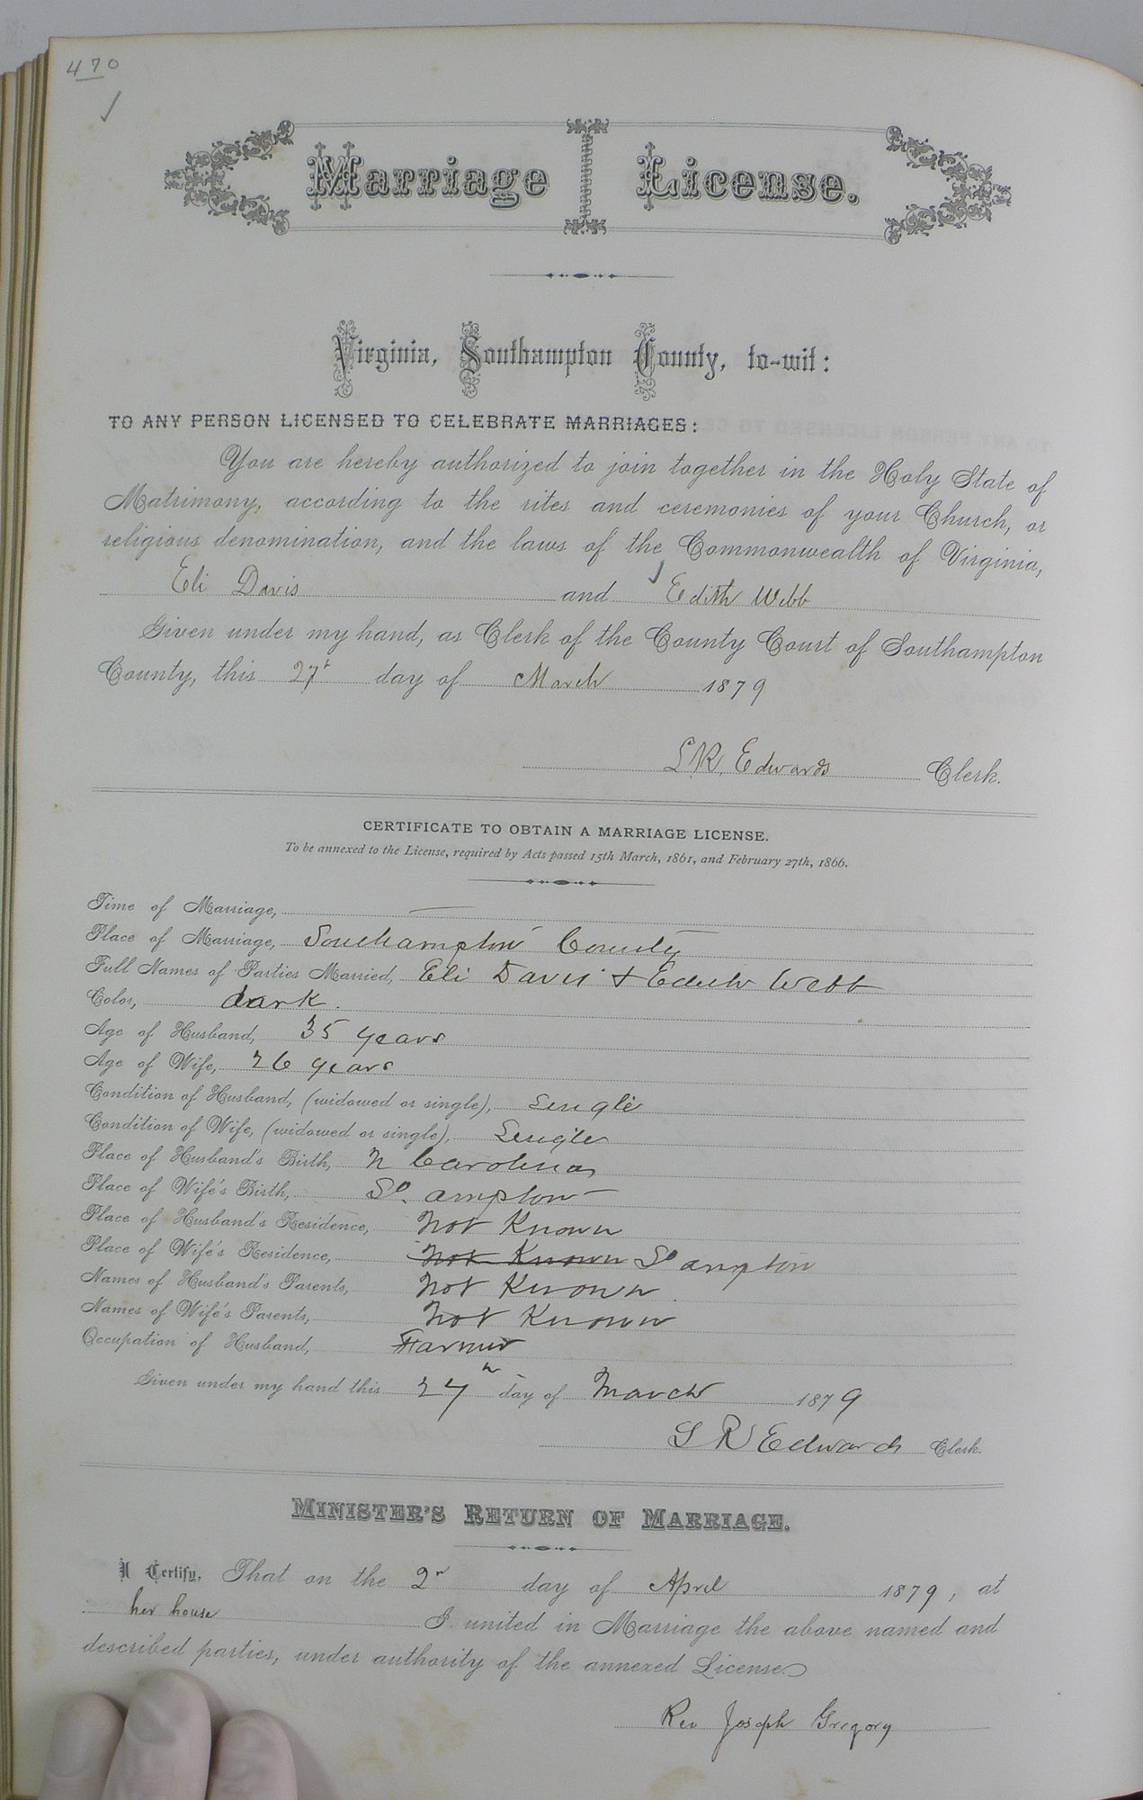 470
Marriage License.
Virginia, Southampton County, to-wit:
TO ANY PERSON LICENSED TO CELEBRATE MARRIAGES:
You are hereby authorized to join together in the Holy State of
Matrimony, according to the rites and ceremonies of your Church, or
religious denomination, and the laws of the Commonwealth of Virginia,
Eli Davis and Edith Webb
Given under my hand, as Clerk of the County Court of Southampton
County, this 27th day of March 1879
L R. Edwards Clerk.
CERTIFICATE TO OBTAIN A MARRIAGE LICENSE.
To be annexed to the License, required by Acts passed 15th March, 1861, and February 27th, 1866.
Time of Marriage, —
Place of Marriage, Southampton County
Full Names of Parties Married, Eli Davis & Edith Webb
Color, dark.
Age of Husband, 35 years
Age of Wife, 26 years
Condition of Husband, (widowed or single), Single
Condition of Wife, (widowed or single), Single
Place of Husband's Birth, N Carolina
Place of Wife's Birth, So. ampton
Place of Husband's Residence, Not Known
Place of Wife's Residence, Not Known So ampton
Names of Husband's Parents, Not Known
Names of Wife's Parents, Not Known
Occupation of Husband, Farmer
Given under my hand this 27th day of March 1879
L R Edwards Clerk.
MINISTER'S RETURN OF MARRIAGE.
I Certify, That on the 2n day of April 1879, at
her house I united in Marriage the above named and
described parties, under authority of the annexed License
Rev Joseph Gregory